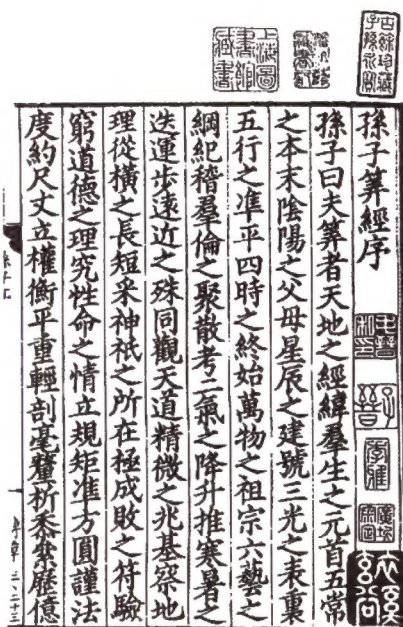 上海圖書館藏書
孫子筭經序
孫子曰夫筭者天地之經緯羣生之元首五常
之本末陰陽之父母星辰之建號三光之表裏
五行之準平四時之終始萬物之祖宗六藝之
綱紀稽羣倫之聚散考二氣之降升推寒暑之
迭運步遠近之殊同觀天道精微之兆基察地
理從橫之長短采神祇之所在極成敗之符驗
窮道德之理究性命之情立規矩準方圓謹法
度約尺丈立權衡平重輕剖毫釐析黍絫歷億
一